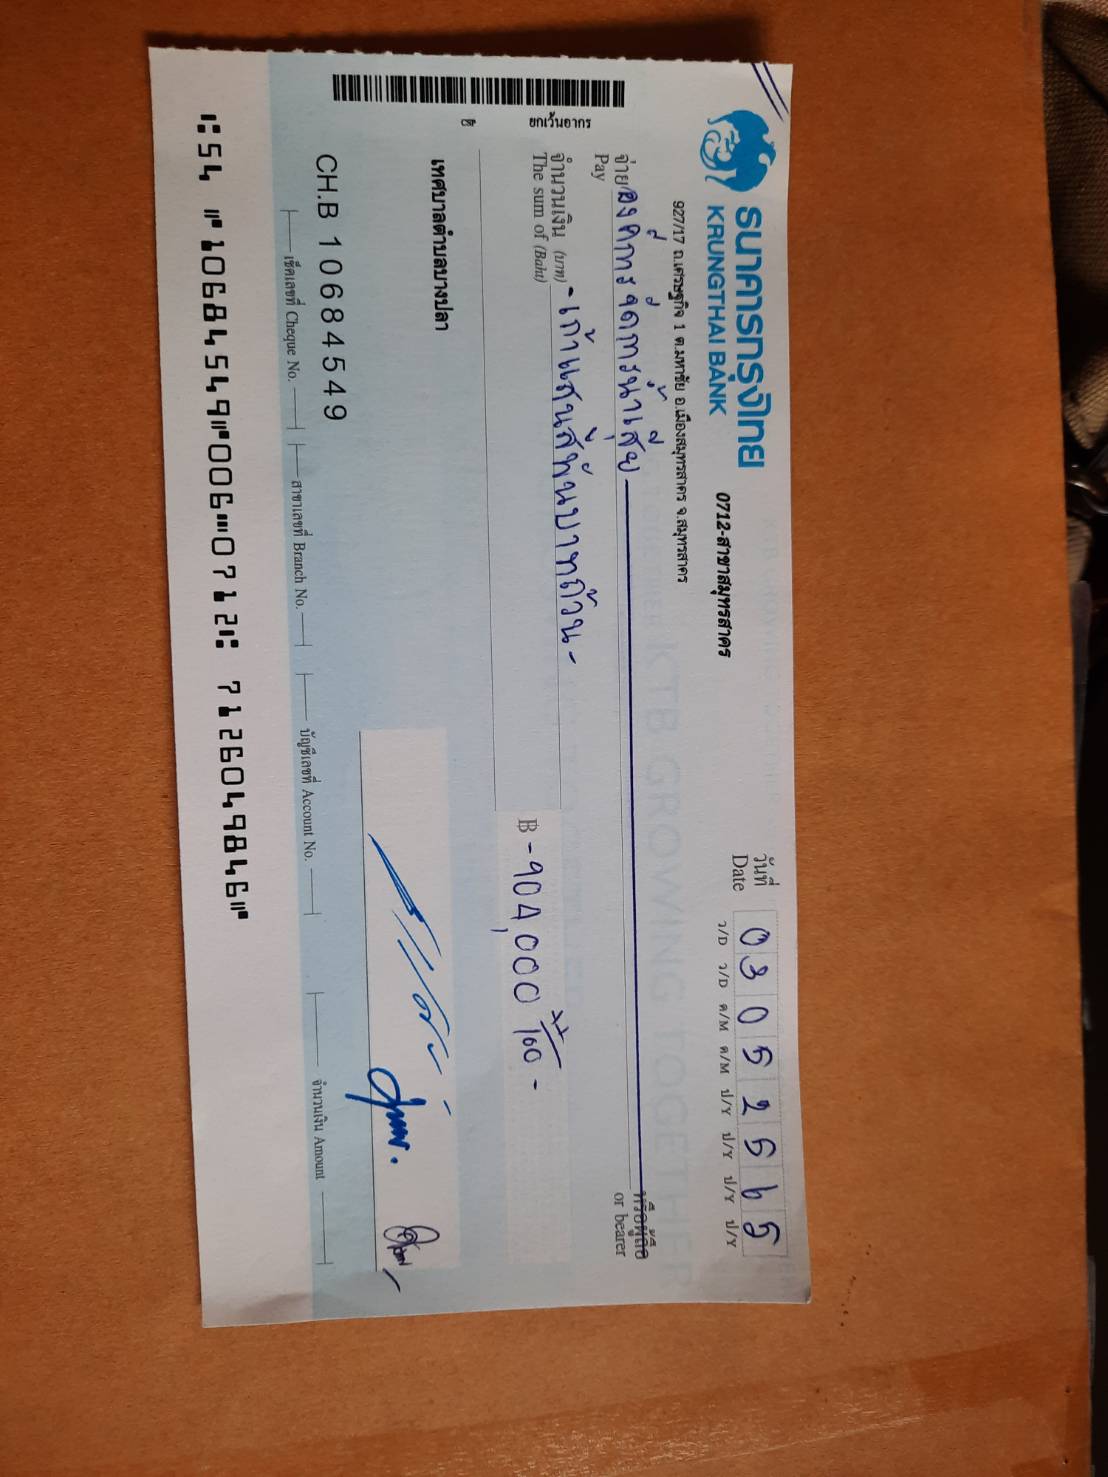 ธนาคารกรุงไทย
KRUNGTHAI BANK
0712-สาขาสมุทรสาคร
927/17 ถ.เศรษฐกิจ 1 ต.มหาชัย อ.เมืองสมุทรสาคร จ.สมุทรสาคร
วันที่ 0 3 0 5 2 5 6 5
Date ว/D ว/D ด/M ด/M ป/Y ป/Y ป/Y ป/Y
KTB GROWING TOGETHER
จ่าย องค์การจัดการน้ำเสีย หรือผู้ถือ
Pay or bearer
จำนวนเงิน (บาท) -เก้าแสนสี่พันบาทถ้วน-
The sum of (Baht)
฿ -904,000 /100 -
ยกเว้นอากร
เทศบาลตำบลบางปลา
CH.B 10684549
เช็คเลขที่ Cheque No. สาขาเลขที่ Branch No. บัญชีเลขที่ Account No. จำนวนเงิน Amount
⑆54 ⑈10684549⑈006⑉0712⑆ 7126049846⑈